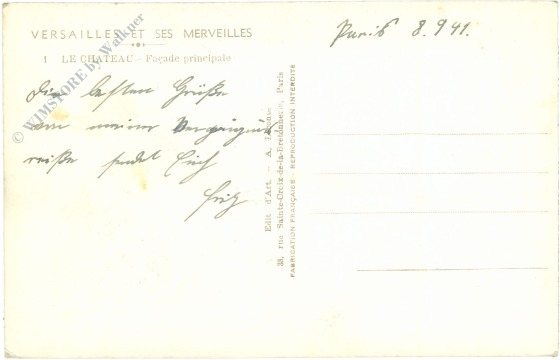 VERSAILLES ET SES MERVEILLES
1 LE CHATEAU - Façade principale
Paris 8.9 41.
Die besten Grüße
von meiner Vergnügungs
reise sendet Euch
Fritz
Edit. d'Art. - A. Leconte
38, rue Sainte-Croix-de-la-Bretonnerie, Paris
FABRICATION FRANÇAISE REPRODUCTION INTERDITE
© WIMSTORE by Walkner